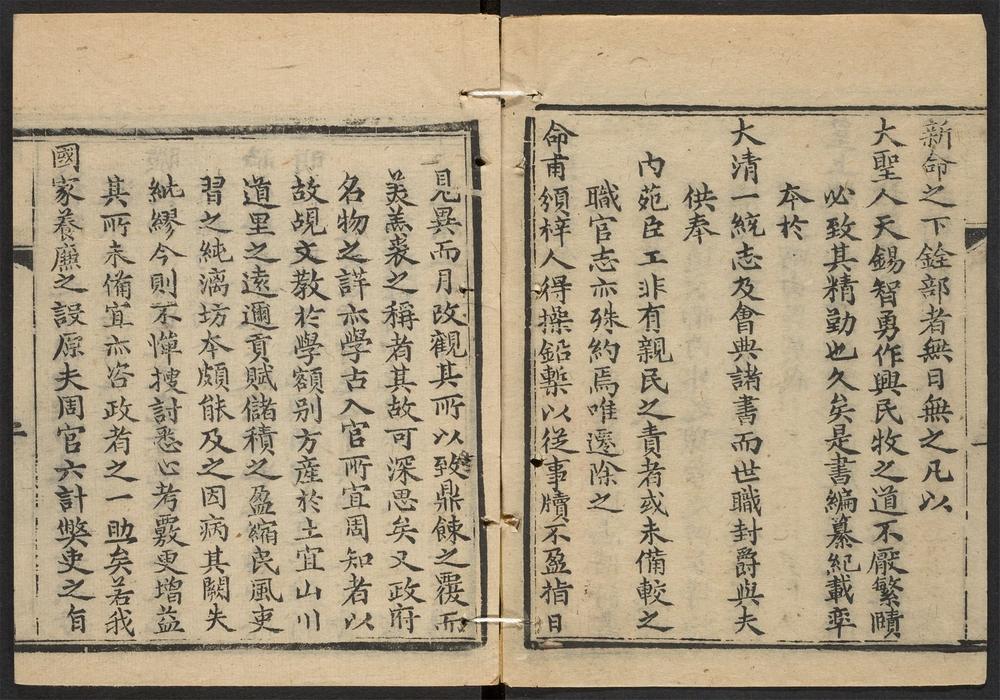 新命之下銓部者無日無之凡以
大聖人天錫智勇作興民牧之道不厭繁賾
必致其精勤也久矣是書編纂紀載率
本於
大清一統志及會典諸書而世職封爵與夫
供奉
內苑臣工非有親民之責者或未備較之
職官志亦殊約焉唯遷除之
命甫頒梓人得操鉛槧以從事牘不盈指日
一見異而月改觀其所以致鼎餗之覆而
羙羔裘之稱者其故可深思矣又政府
名物之詳亦學古入官所宜周知者以
故覘文教於學額别方產於土宜山川
道里之遠邇貢賦儲積之盈縮民風吏
習之純漓坊本頗能及之因病其闕失
紕繆今則不憚搜討悉心考覈更增益
其所未備宜亦咨政者之一助矣若我
國家養廉之設原夫周官六計獘吏之旨
二